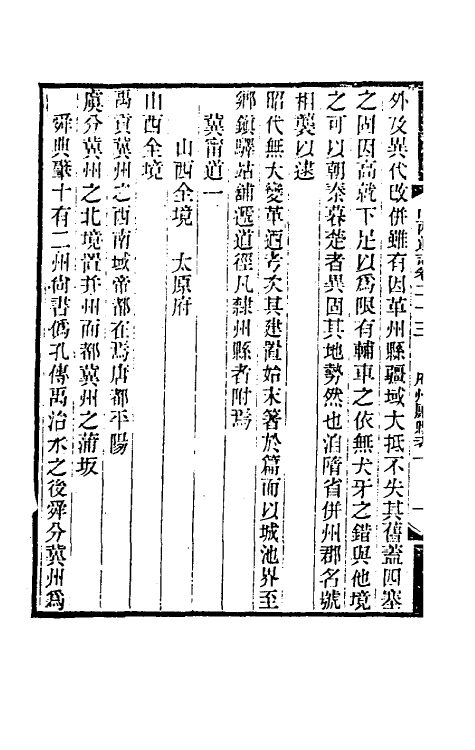 外及異代改併雖有因革州縣疆域大抵不失其舊蓋四塞
之固因高就下足以為限有輔車之依無犬牙之錯與他境
之可以朝秦暮楚者異固其地勢然也洎隋省併州郡名號
相襲以逮
昭代無大變革迺考次其建置始末箸於篇而以城池界至
鄉鎮驛站舖遞道徑凡隸州縣者附焉
冀甯道一
山西全境 太原府
山西全境
禹貢冀州之西南域帝都在焉唐都平陽
虞分冀州之北境置并州而都冀州之蒲坂
舜典肇十有二州尙書僞孔傳禹治水之後舜分冀州為